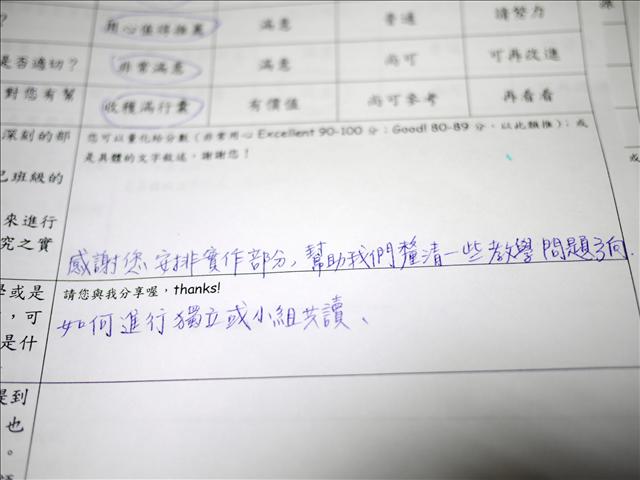 ? 用心值得推薦 滿意 普通 請努力
是否適切? 非常滿意 滿意 尚可 可再改進
對您有幫 收穫滿行囊 有價值 尚可參考 再看看
深刻的部 您可以量化給分數(非常用心 Excellent 90-100 分;Good! 80-89 分,以此類推);或
是具體的文字敘述,謝謝您!
己班級的
來進行
究之實
感謝您安排實作部分,幫助我們釐清一些教學問題方向.
學或是 請您與我分享喔,thanks!
,可 如何進行獨立或小組共讀、
是什
是到
也
。